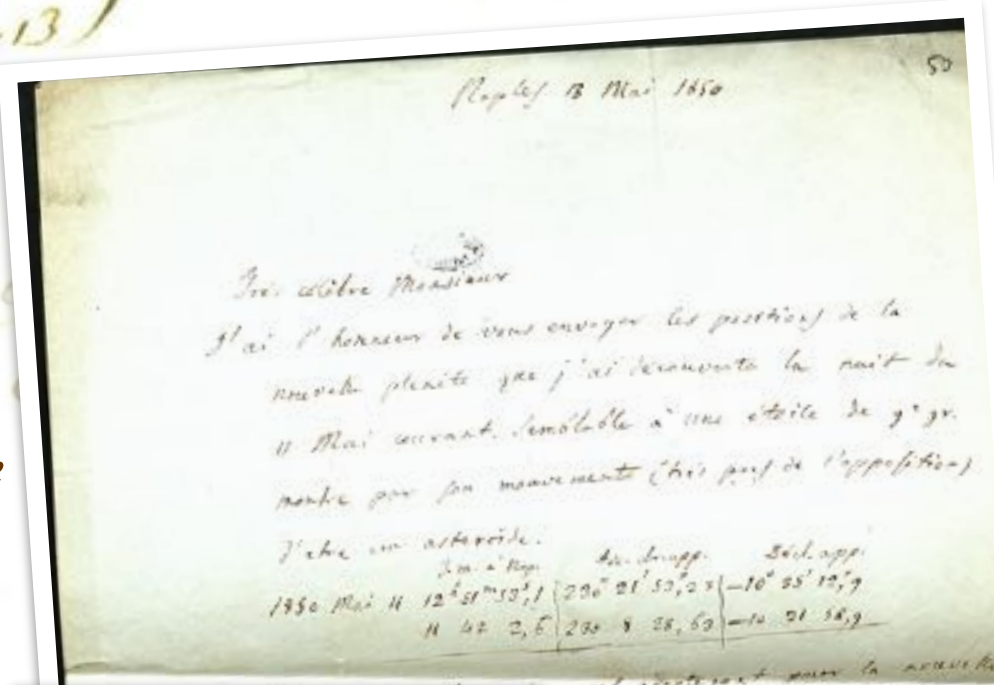 -13)
50
Naples 13 Mai 1850
Très célèbre Monsieur
J'ai l'honneur de vous envoyer les positions de la
nouvelle planète que j'ai découverte la nuit du
11 Mai courant. Semblable à une étoile de 9e gr.
montre par son mouvement (très près de l'opposition)
d'être un astéroïde.
T. m. à Nap. Asc. dr. app. Décl. app.
1850 Mai 11 12h 51m 53s,1
11 42 2,6
pour la nouvelle